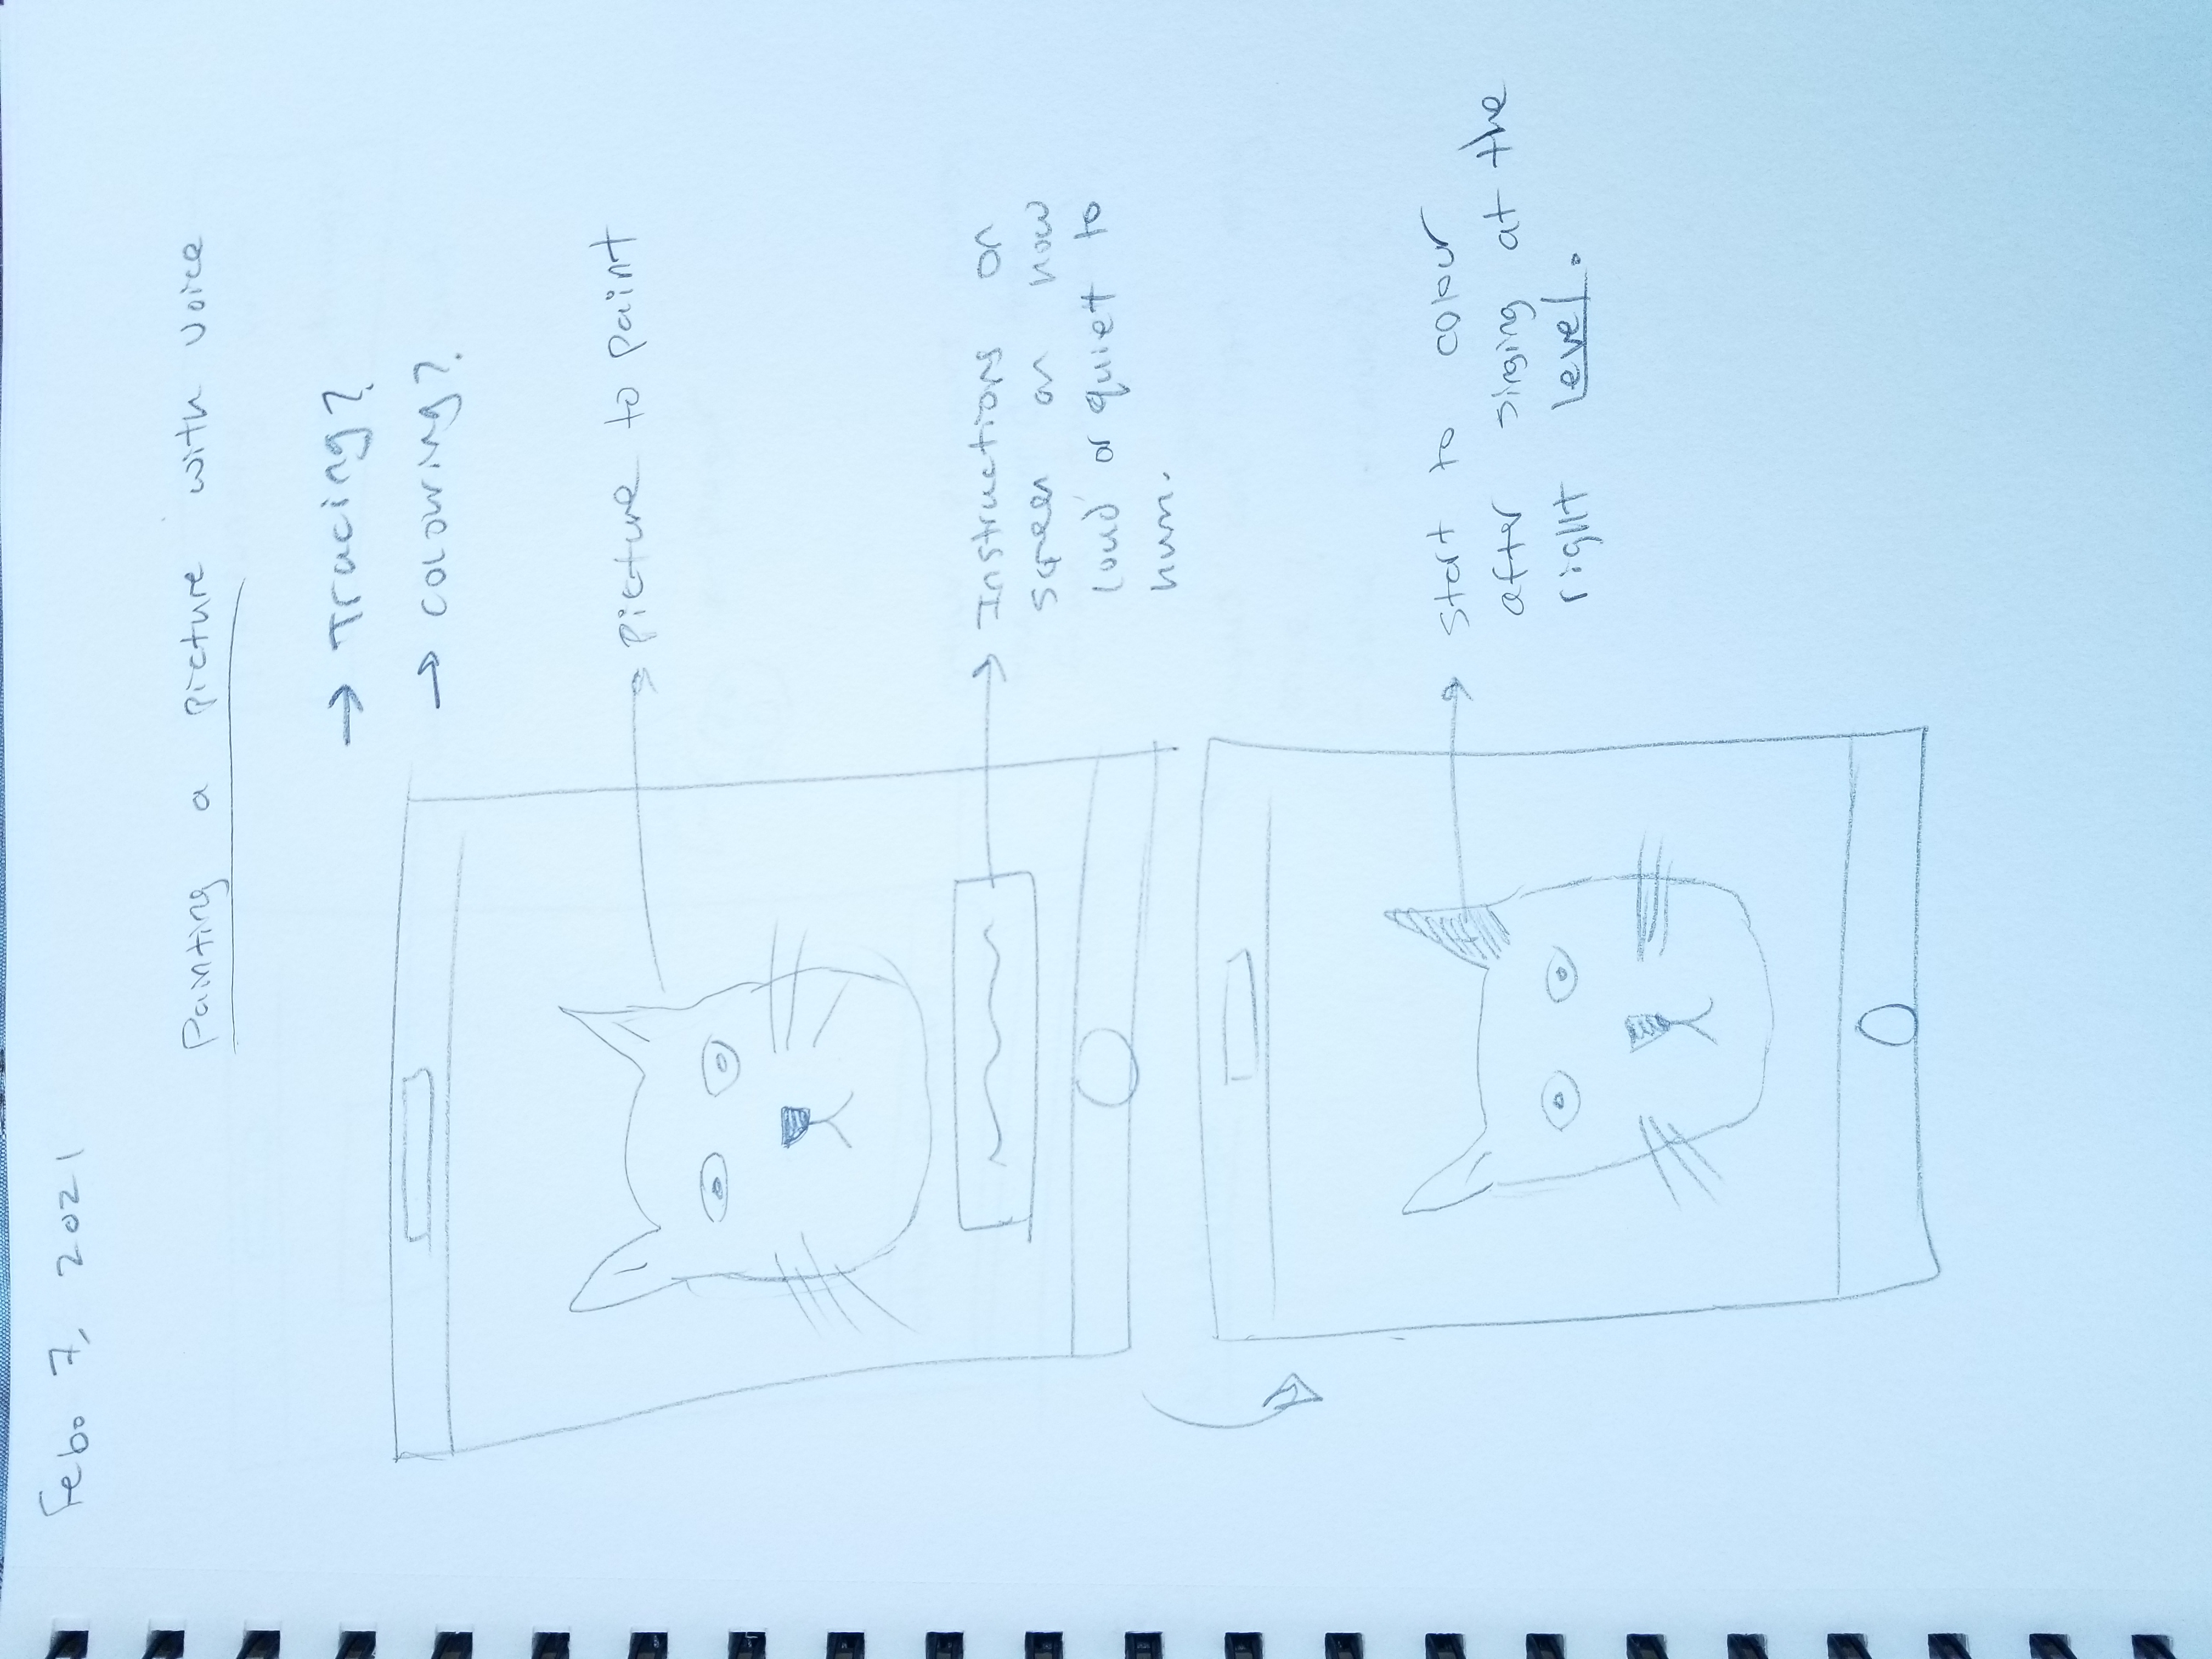 Feb. 7, 2021
Painting a picture with voice
→ Tracing?
→ colouring?
picture to paint
Instructions on
screen on how
loud or quiet to
hum.
start to colour
after singing at the
right level.